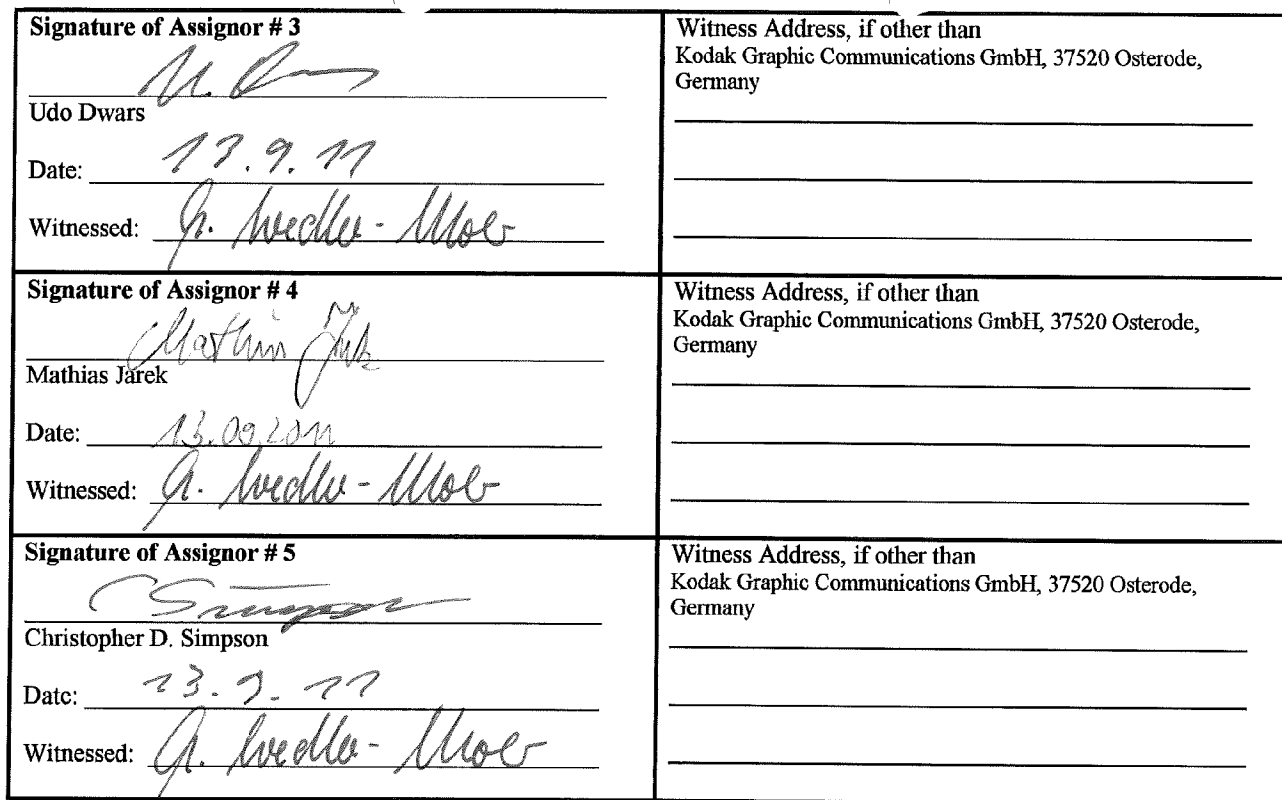 Signature of Assignor # 3
U. Dwars
Udo Dwars
Date: 13.9.11
Witnessed: G. Wedler-
Witness Address, if other than
Kodak Graphic Communications GmbH, 37520 Osterode,
Germany
Signature of Assignor # 4
Mathias Jarek
Mathias Jarek
Date: 13.09.2011
Witnessed: G. Wedler-
Witness Address, if other than
Kodak Graphic Communications GmbH, 37520 Osterode,
Germany
Signature of Assignor # 5
C Simpson
Christopher D. Simpson
Date: 13.9.11
Witnessed: G. Wedler-
Witness Address, if other than
Kodak Graphic Communications GmbH, 37520 Osterode,
Germany